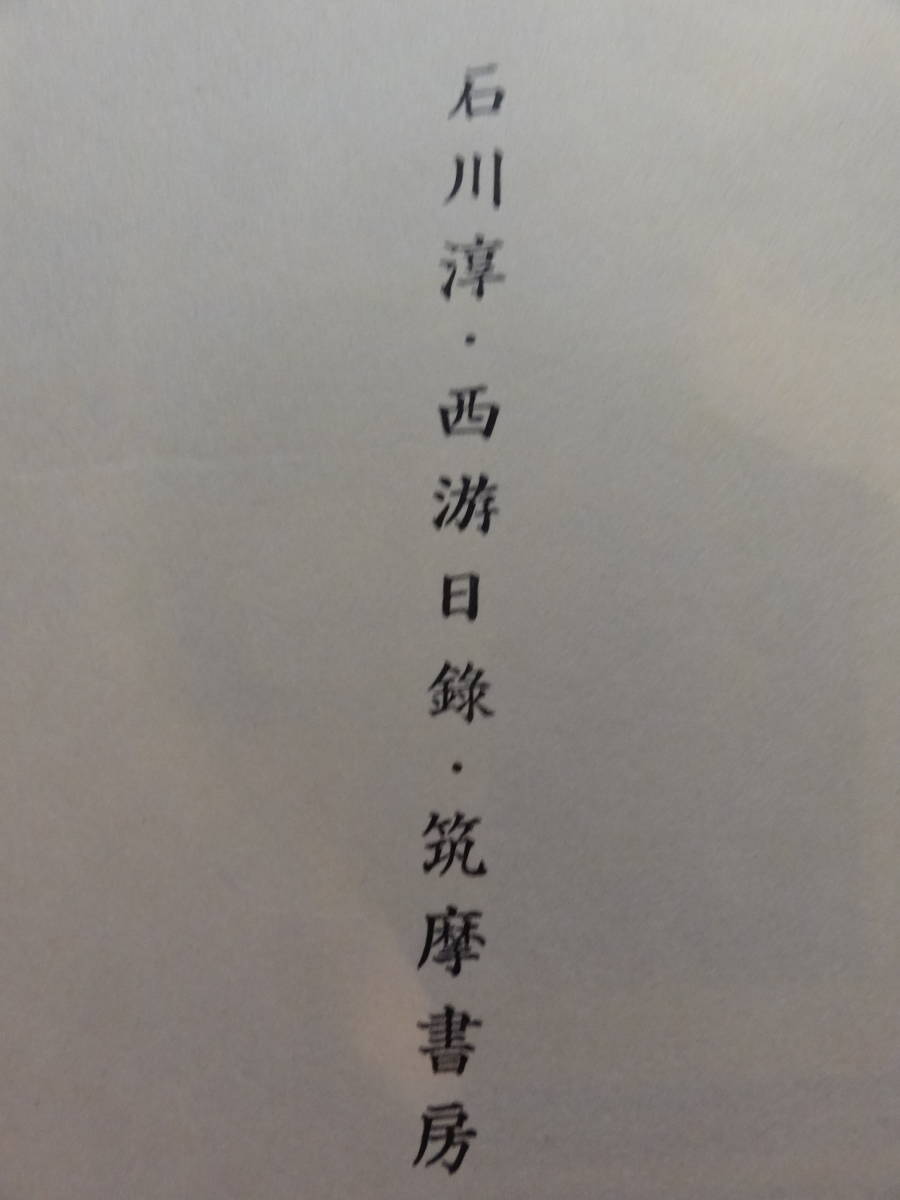 石川淳・西游日錄・筑摩書房